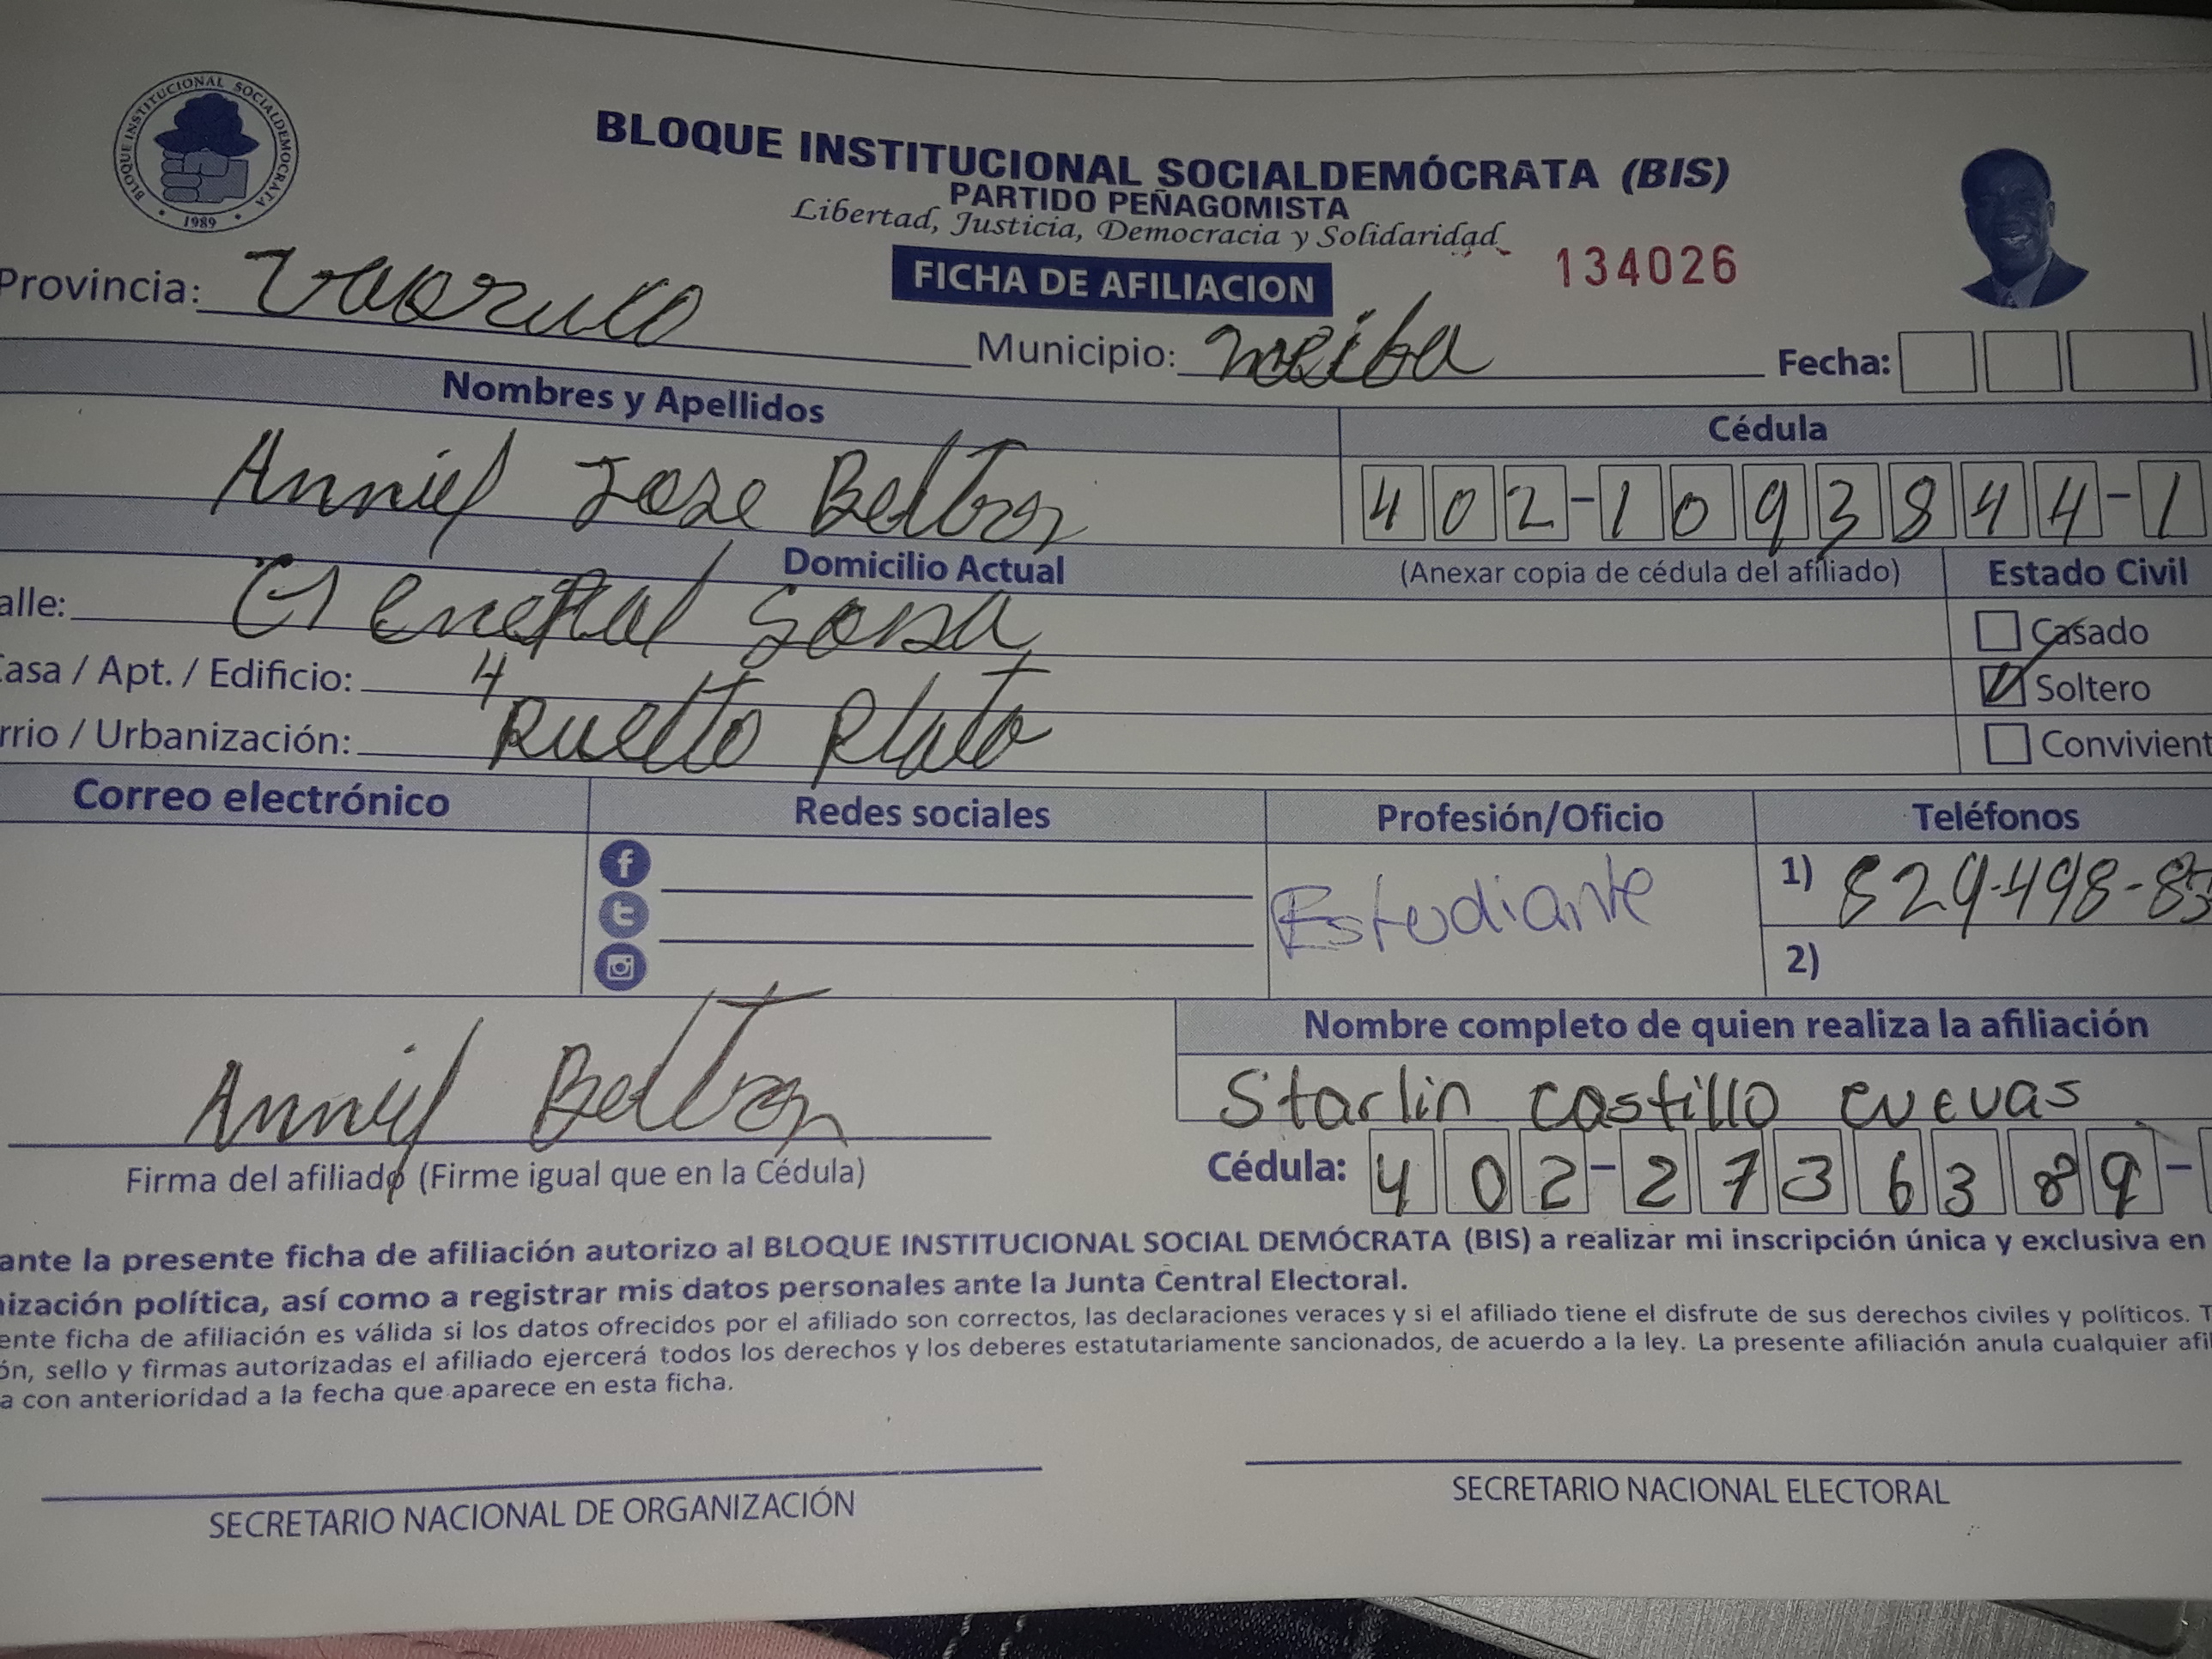 BLOQUE INSTITUCIONAL SOCIALDEMOCRATA
1989
BLOQUE INSTITUCIONAL SOCIALDEMÓCRATA (BIS)
PARTIDO PEÑAGOMISTA
Libertad, Justicia, Democracia y Solidaridad
134026
FICHA DE AFILIACION
Provincia: Vaoruco
Municipio: neiba
Fecha:
Nombres y Apellidos
Cédula
Anniel Jose Beltron
402-1093844-1
Domicilio Actual
(Anexar copia de cédula del afiliado)
Estado Civil
alle: General Sosa
Casado
asa / Apt. / Edificio: 4
Soltero
rrio / Urbanización: Puetto Plata
Convivient
Correo electrónico
Redes sociales
Profesión/Oficio
Teléfonos
Estudiante
1) 829-498-83
2)
Anniel Beltron
Firma del afiliado (Firme igual que en la Cédula)
Nombre completo de quien realiza la afiliación
Starlin castillo cuevas
Cédula: 402-2736389-
ante la presente ficha de afiliación autorizo al BLOQUE INSTITUCIONAL SOCIAL DEMÓCRATA (BIS) a realizar mi inscripción única y exclusiva en
nización política, así como a registrar mis datos personales ante la Junta Central Electoral.
ente ficha de afiliación es válida si los datos ofrecidos por el afiliado son correctos, las declaraciones veraces y si el afiliado tiene el disfrute de sus derechos civiles y políticos. T
ón, sello y firmas autorizadas el afiliado ejercerá todos los derechos y los deberes estatutariamente sancionados, de acuerdo a la ley. La presente afiliación anula cualquier afil
a con anterioridad a la fecha que aparece en esta ficha.
SECRETARIO NACIONAL DE ORGANIZACIÓN
SECRETARIO NACIONAL ELECTORAL